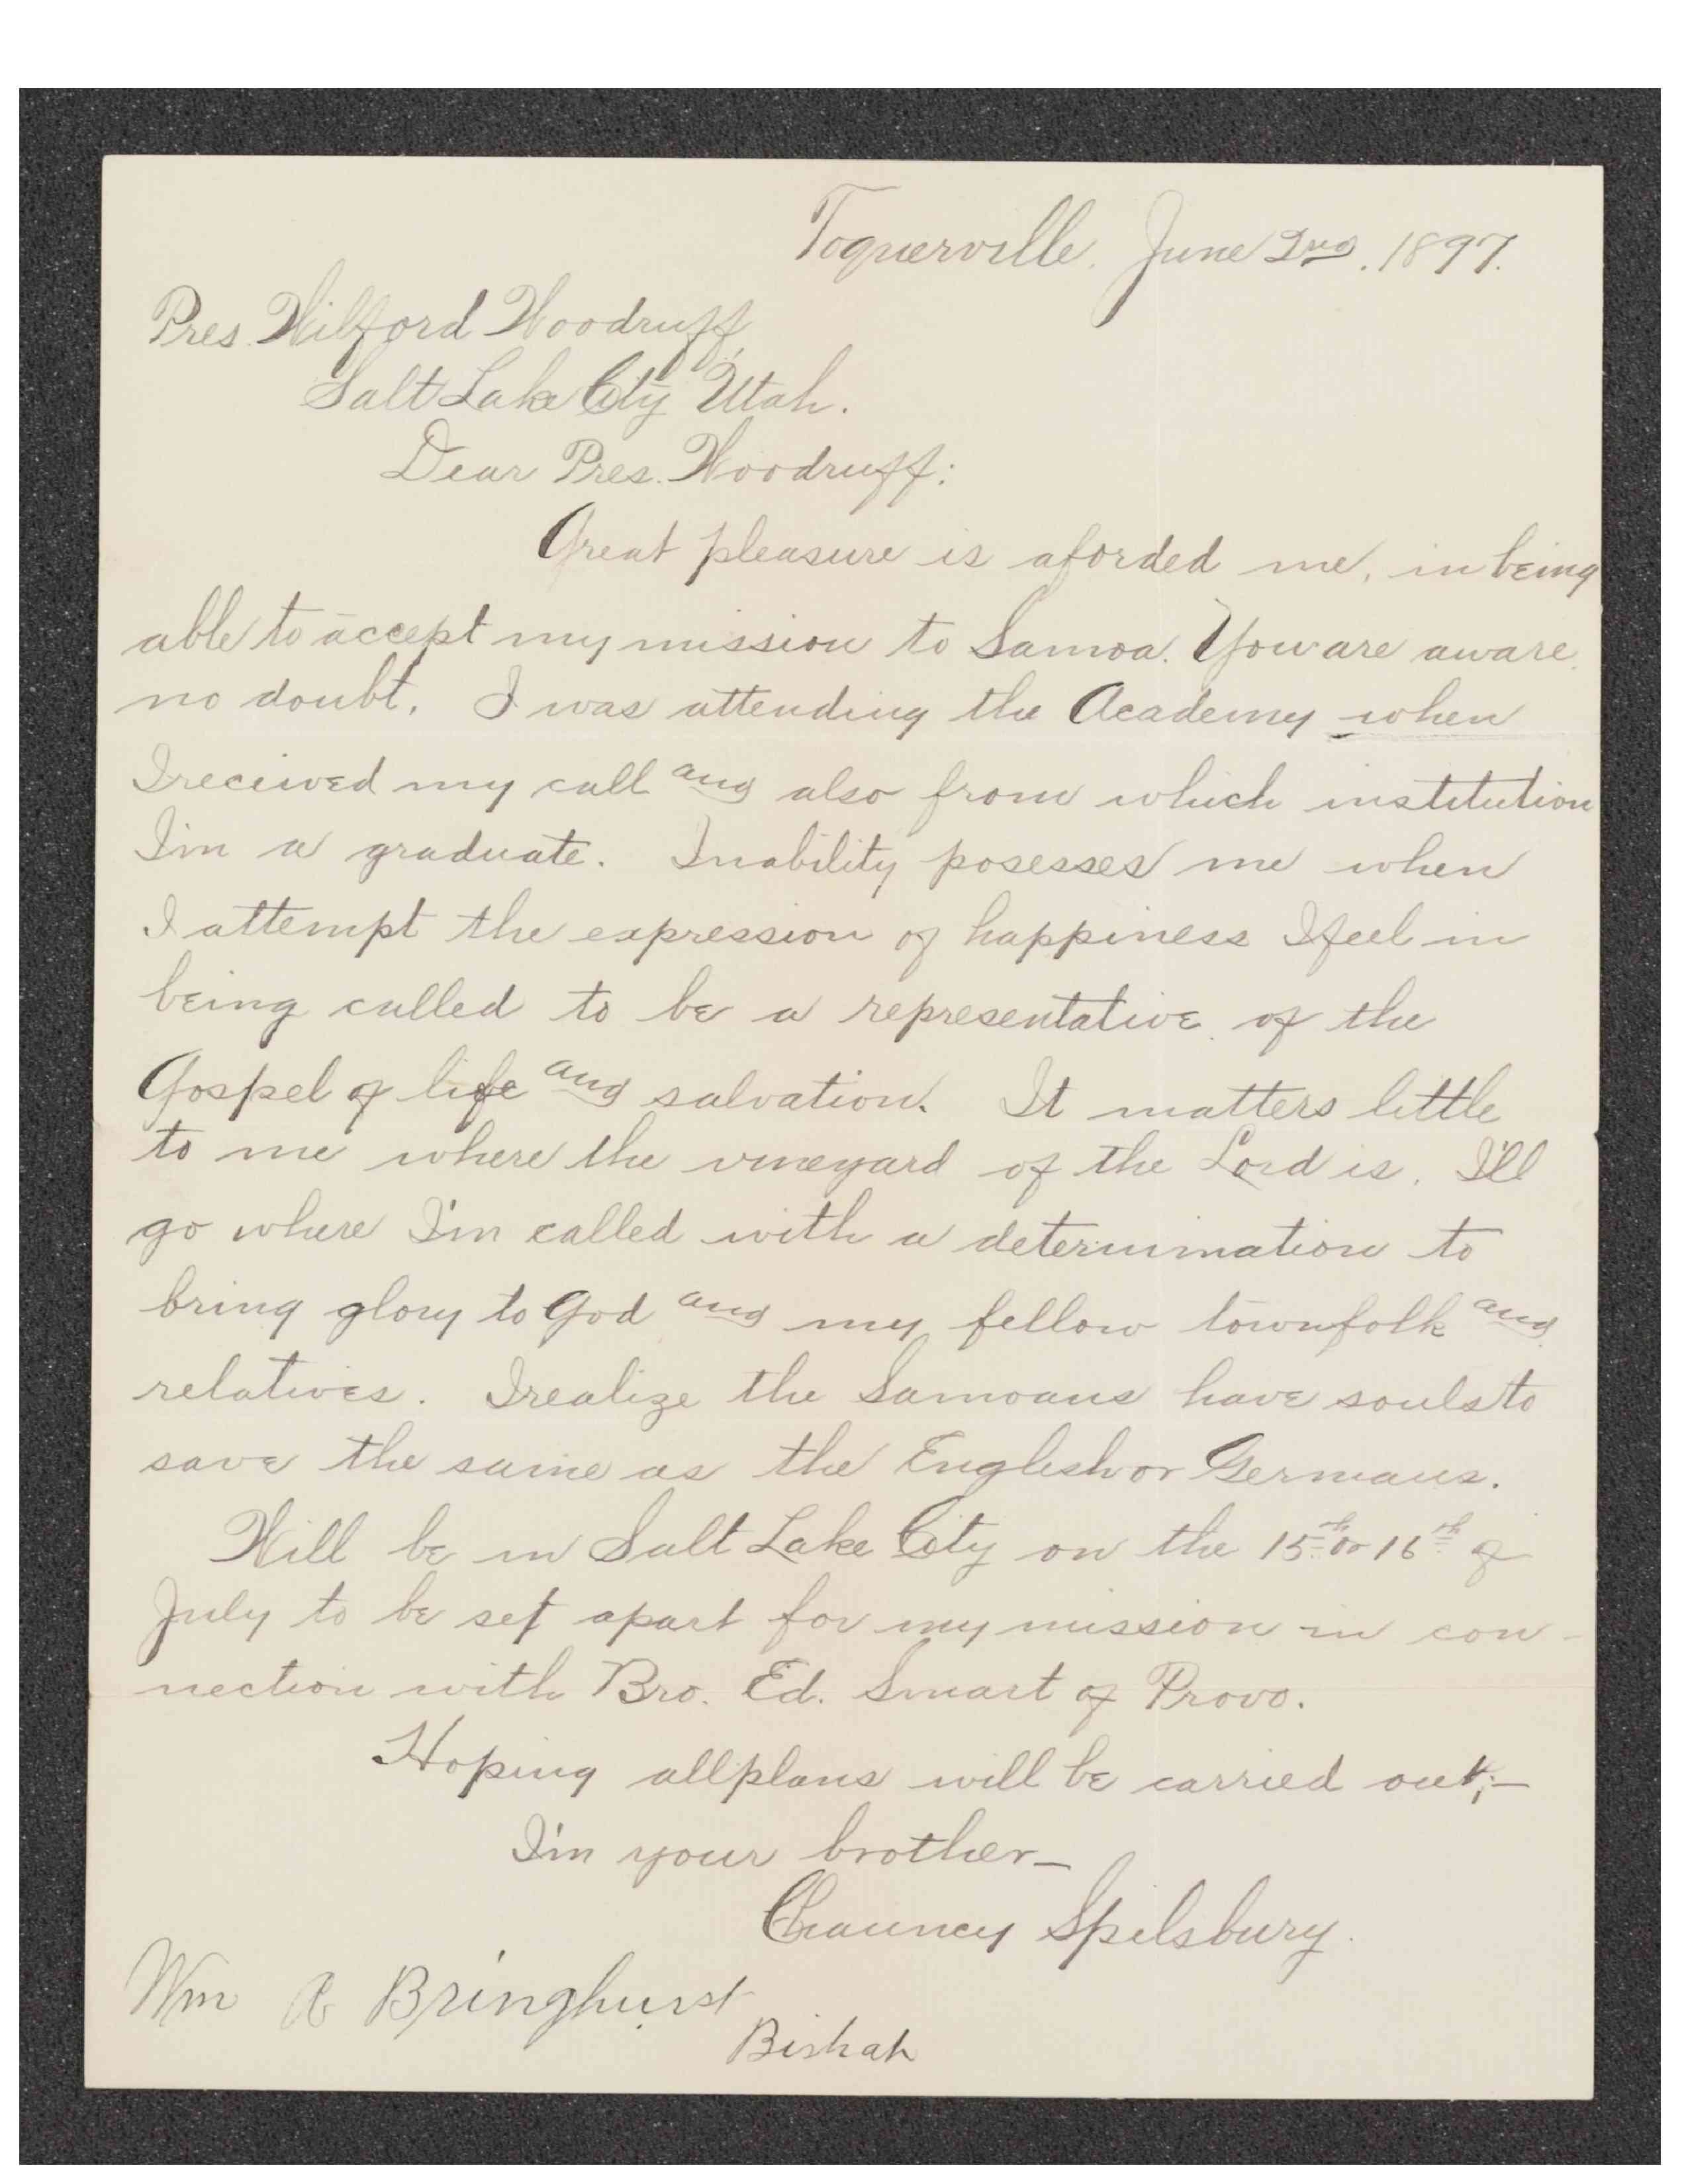 Toquerville. June 2nd. 1897.
Pres. Wilford Woodruff,
Salt Lake City Utah.
Dear Pres. Woodruff:
Great pleasure is aforded me, in being
able to accept my mission to Samoa. You are aware
no doubt. I was attending the Academy when
I received my call and also from which institution
I'm a graduate. Inability posesses me when
I attempt the expression of happiness I feel in
being called to be a representative of the
Gospel of life and salvation. It matters little
to me where the vineyard of the Lord is. I'll
go where I'm called with a determination to
bring glory to God and my fellow townfolk and
relatives. I realize the Samoans have souls to
save the same as the English or Germans.
Will be in Salt Lake City on the 15th or 16th of
July to be set apart for my mission in con-
nection with Bro. Ed. Smart of Provo.
Hoping all plans will be carried out;-
I'm your brother-
Chauncy Spilsbury.
Wm A Bringhurst
Bishop